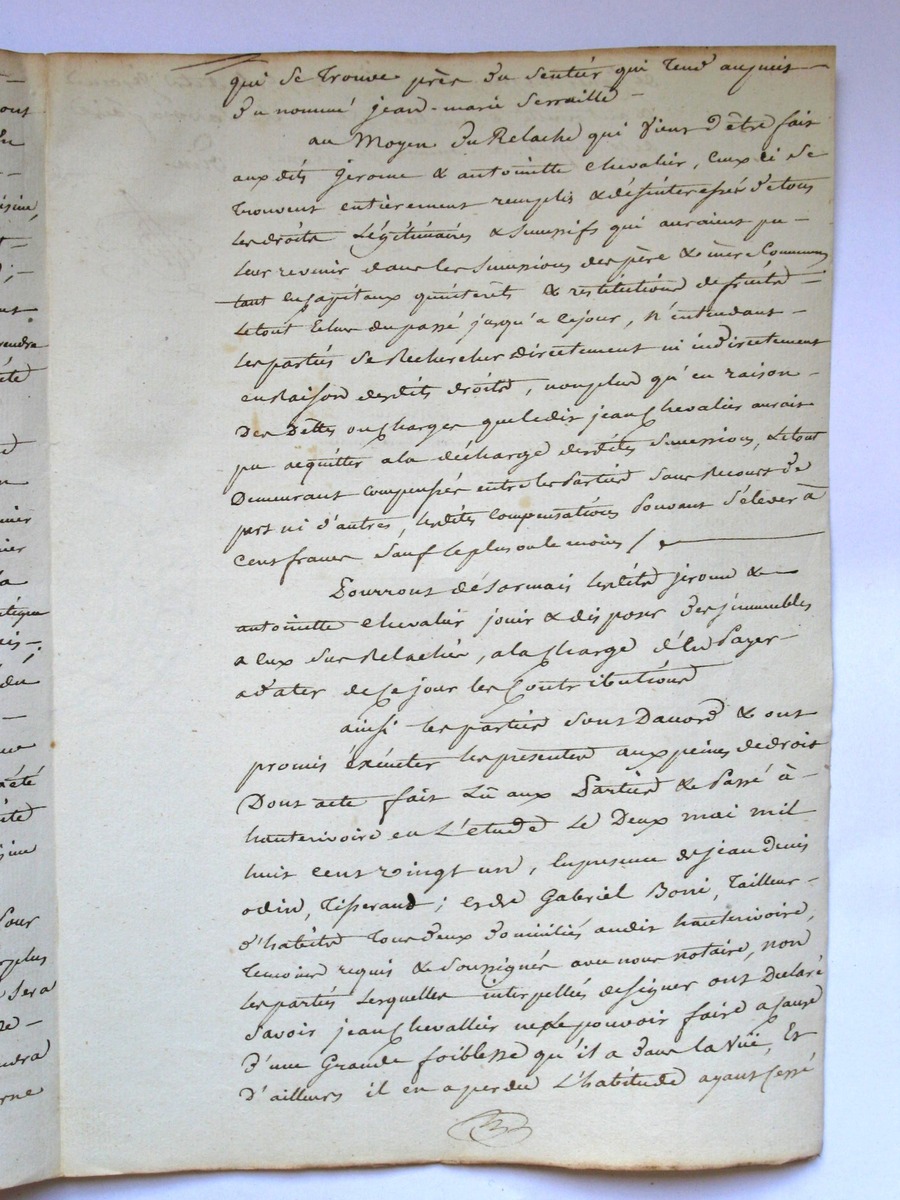 qui se trouve près du sentier qui tend aujueit
du nommé jean-marie Serraille
au Moyen du Relache qui vient d'être fait
auxdits jerome & antoinette chevalier, ceux ci se
trouvent entièrement remplis & désinteressés de tous
les droits Légitimaires & Sucussifs qui auraient pu
leur revenir dans les Sucussions des père & mère Communs
tant en Capitaux qu'intérêts & restitutions de fruits
le tout Echus du passé jusqu'a cejour, N'entendant
les parties se Rechercher directement ni indirectement
en Raison desdits droits, nonplus qu'en raison
Des Dettes ou Charges que ledit jean Chevalier aurait
pu acquitter a la décharge desdites Sucussions, le tout
Demeurant Compensée entre les Parties Sans Recours de
part ni d'autres, lesdites Compensations Pouvant S'élever à
Cent francs Sauf le plus ou le moins /.
Pourront désormais lesdits jerome &
antoinette chevalier jouir & disposer des jmmeubles
a Eux Sus Relachés, a la Charge d'En Payer
adater de Ce jour les Contributions
ainsi les parties Sont Daccord & ont
promis éxécuter les presentes aux peines de droit
Dont acte fait Lû aux Parties & Passé à
hauterivoire en L'étude le Deux mai mil
huit cent vingt un, En presence de Jean Denis
odin, Tisserand; et de Gabriel Boni, Tailleur
d'habits Tous deux Domiciliés audit hauterivoire,
Temoins requis & Soussignés avec nous notaire, non
les parties lesquelles interpellées de Signer ont Déclaré
Savoir jean Chevallier ne le pouvoir faire a Cause
D'une Grande foiblesse qu'il a dans la Vuë, Et
D'ailleurs il en a perdu L'habitude ayant Cessé